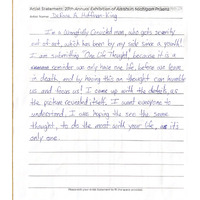 Artist Statement: 20th Annual Exhibition of Artists in Michigan Prisons
Artist Name: DeJuan A. Hoffman-King
I'm a wrongfully Convicted man, who gets serenity
out of art, which has been by my side since a youth!
I am submitting "One Life Thought", because it is a
consider we only have one life before we leave
in death, and by having this on thought can humble
us and focus us! I came up with the details, as
the picture revealed itself. I want everyone to
understand, I was hoping the see the same
thought, to do the most with your life, as its
only one.